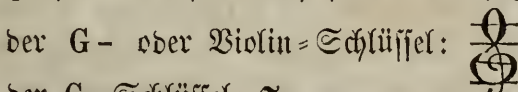 der G- oder Violin-Schlüssel: